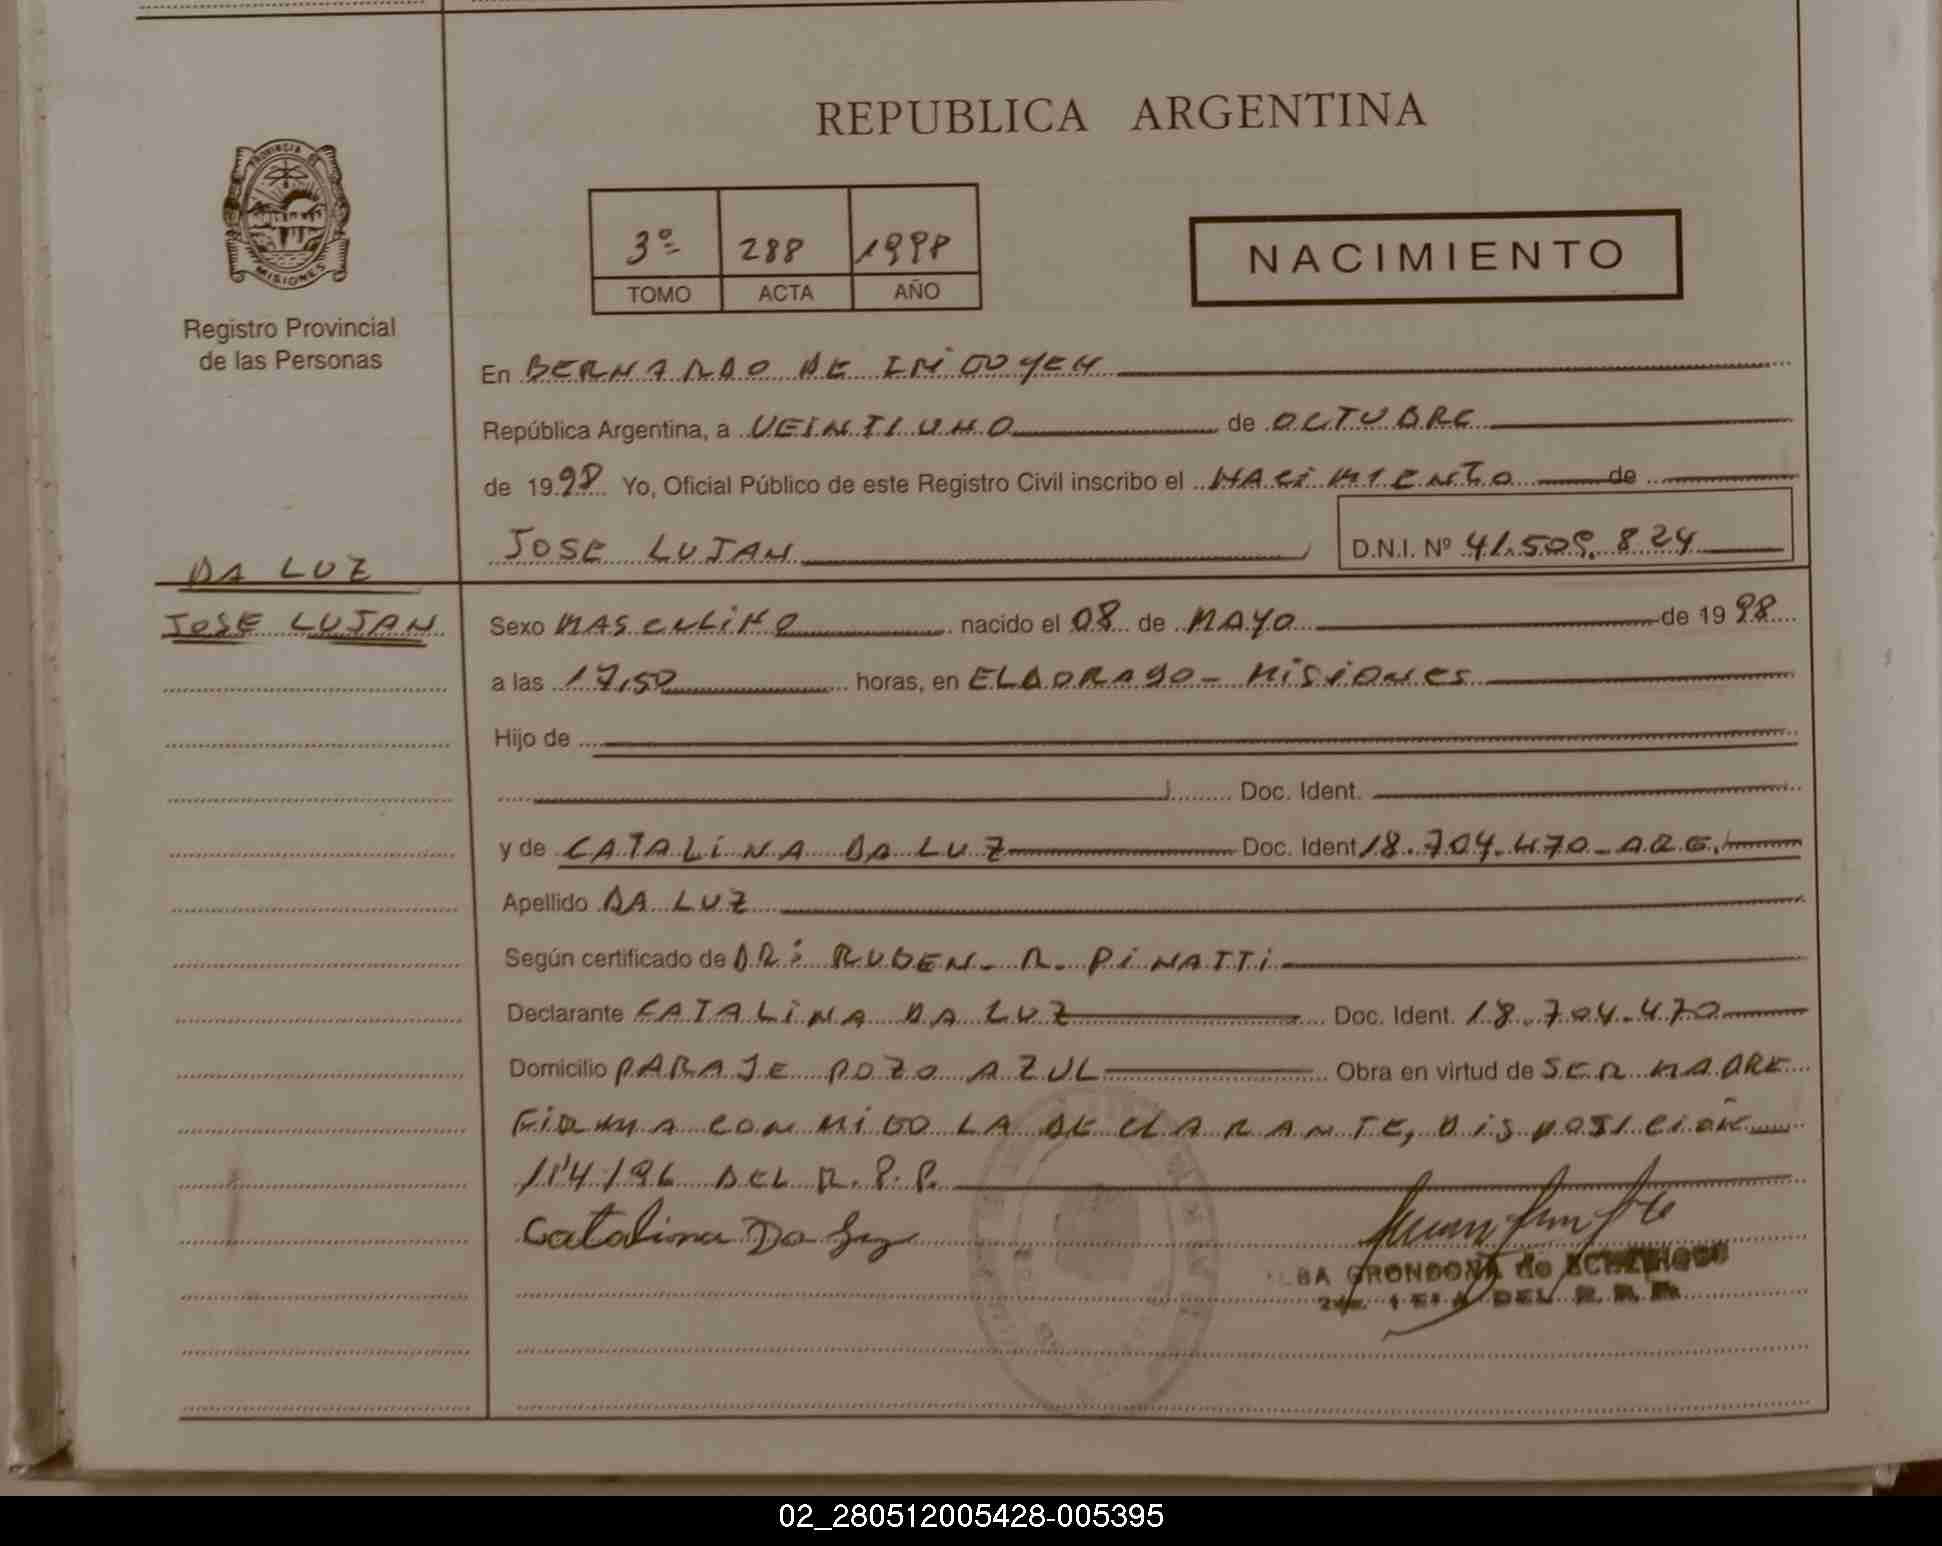 REPUBLICA ARGENTINA
PROVINCIA DE
MISIONES
Registro Provincial
de las Personas
3º 288 1998
TOMO ACTA AÑO
NACIMIENTO
En BERNARDO DE IRIGOYEN
República Argentina, a VEINTIUNO de OCTUBRE
de 1998 Yo, Oficial Público de este Registro Civil inscribo el NACIMIENTO de
JOSE LUJAN D.N.I. Nº 41.509.824
DA LUZ
JOSE LUJAN
Sexo MASCULINO nacido el 08 de MAYO de 1998
a las 17,50 horas, en ELDORADO - MISIONES
Hijo de
Doc. Ident.
y de CATALINA DA LUZ Doc. Ident 18.704.470 - ARG.
Apellido DA LUZ
Según certificado de DR: RUBEN - R. PINATTI
Declarante CATALINA DA LUZ Doc. Ident. 18.704.470
Domicilio PARAJE POZO AZUL Obra en virtud de SER MADRE
FIRMA CONMIGO LA DECLARANTE, DISPOSICION
114/96 DEL R.P.P.
Catalina Da Luz
GRONDONA de
DEL R.P.P.
02_280512005428-005395